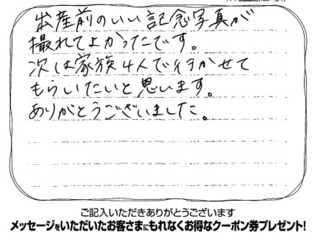 出産前のいい記念写真が
撮れてよかったです。
次は家族4人で行かせて
もらいたいと思います。
ありがとうございました。
ご記入いただきありがとうございます
メッセージをいただいたお客さまにもれなくお得なクーポン券プレゼント!